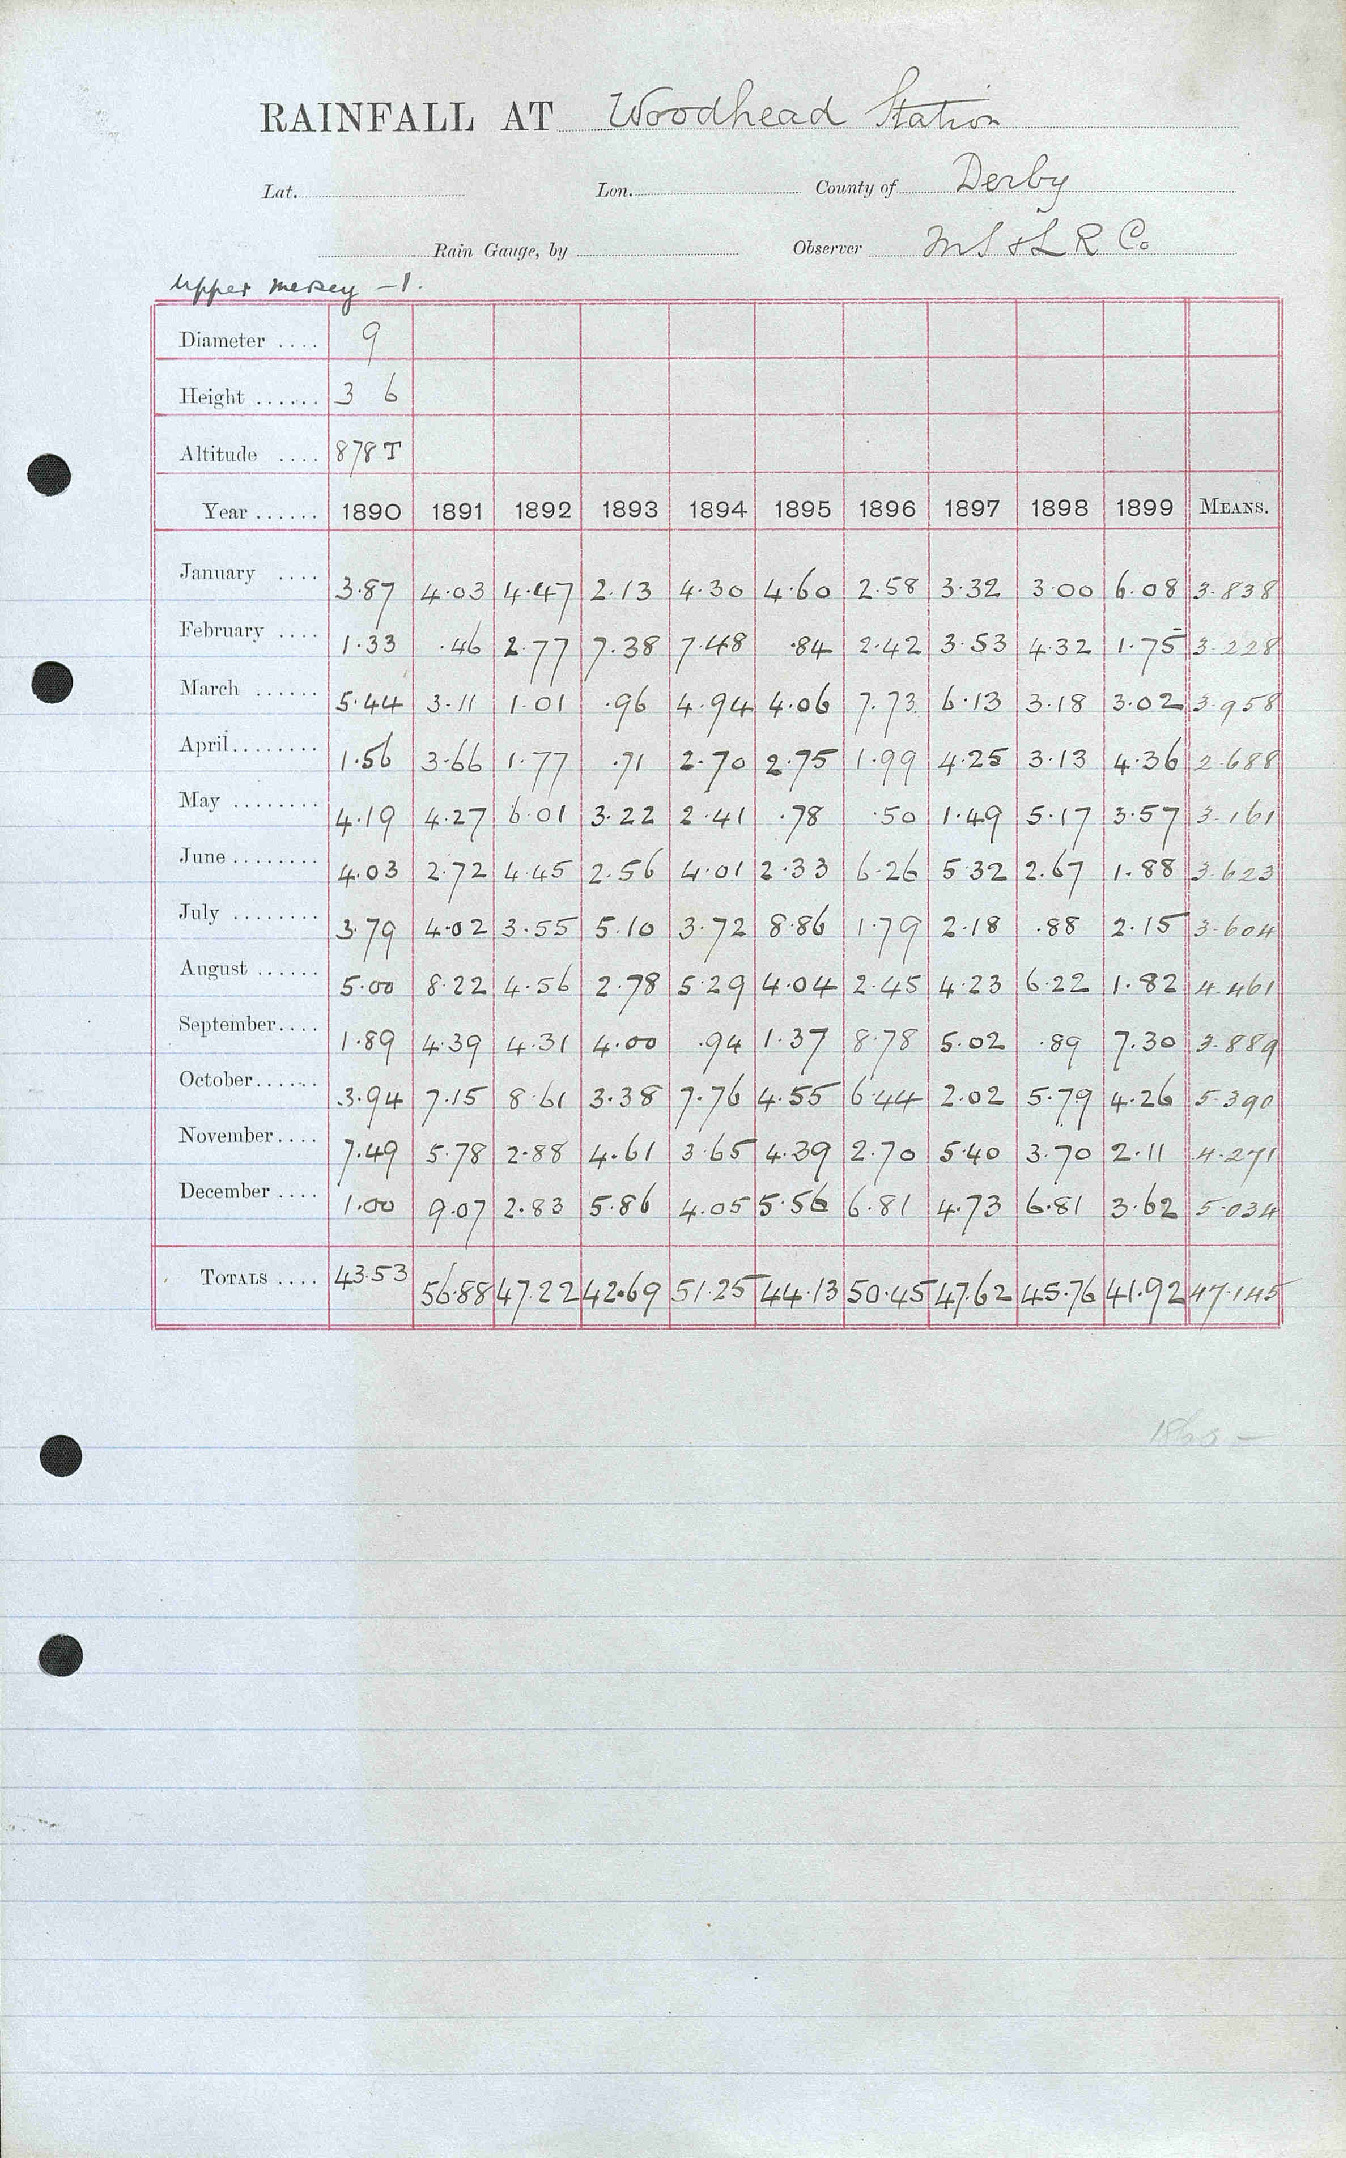 RAINFALL AT Woodhead Station
Lat. Lon. County of Derby
Rain Gauge, by Observer M S & L R Co
Upper Mersey - 1.
Diameter .... 9
Height ...... 3 6
Altitude .... 878 T
Year ...... 1890 1891 1892 1893 1894 1895 1896 1897 1898 1899 MEANS.
January .... 3.87 4.03 4.47 2.13 4.30 4.60 2.58 3.32 3.00 6.08 3.838
February .... 1.33 .46 2.77 7.38 7.48 .84 2.42 3.53 4.32 1.75 3.228
March ...... 5.44 3.11 1.01 .96 4.94 4.06 7.73 6.13 3.18 3.02 3.958
April ........ 1.56 3.66 1.77 .71 2.70 2.75 1.99 4.25 3.13 4.36 2.688
May ........ 4.19 4.27 6.01 3.22 2.41 .78 .50 1.49 5.17 3.57 3.161
June ........ 4.03 2.72 4.45 2.56 4.01 2.33 6.26 5.32 2.67 1.88 3.623
July ........ 3.79 4.02 3.55 5.10 3.72 8.86 1.79 2.18 .88 2.15 3.604
August ...... 5.00 8.22 4.56 2.78 5.29 4.04 2.45 4.23 6.22 1.82 4.461
September.... 1.89 4.39 4.31 4.00 .94 1.37 8.78 5.02 .89 7.30 3.889
October....... 3.94 7.15 8.61 3.38 7.76 4.55 6.44 2.02 5.79 4.26 5.390
November.... 7.49 5.78 2.88 4.61 3.65 4.39 2.70 5.40 3.70 2.11 4.271
December .... 1.00 9.07 2.83 5.86 4.05 5.56 6.81 4.73 6.81 3.62 5.034
TOTALS .... 43.53 56.88 47.22 42.69 51.25 44.13 50.45 47.62 45.76 41.92 47.145